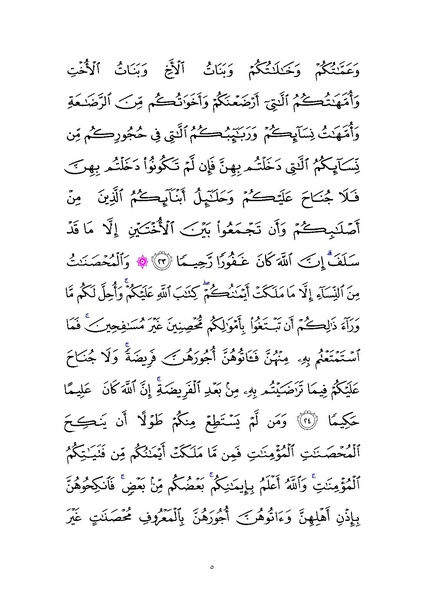 وَعَمَّٰتُكُمْ وَخَٰلَٰتُكُمْ وَبَنَاتُ ٱلْأَخِ وَبَنَاتُ ٱلْأُخْتِ
وَأُمَّهَٰتُكُمُ ٱلَّٰتِىٓ أَرْضَعْنَكُمْ وَأَخَوَٰتُكُم مِّنَ ٱلرَّضَٰعَةِ
وَأُمَّهَٰتُ نِسَآئِكُمْ وَرَبَٰٓئِبُكُمُ ٱلَّٰتِى فِى حُجُورِكُم مِّن
نِّسَآئِكُمُ ٱلَّٰتِى دَخَلْتُم بِهِنَّ فَإِن لَّمْ تَكُونُوا۟ دَخَلْتُم بِهِنَّ
فَلَا جُنَاحَ عَلَيْكُمْ وَحَلَٰٓئِلُ أَبْنَآئِكُمُ ٱلَّذِينَ مِنْ
أَصْلَٰبِكُمْ وَأَن تَجْمَعُوا۟ بَيْنَ ٱلْأُخْتَيْنِ إِلَّا مَا قَدْ
سَلَفَ ۗ إِنَّ ٱللَّهَ كَانَ غَفُورًا رَّحِيمًا ٢٣ ۞ وَٱلْمُحْصَنَٰتُ
مِنَ ٱلنِّسَآءِ إِلَّا مَا مَلَكَتْ أَيْمَٰنُكُمْ ۖ كِتَٰبَ ٱللَّهِ عَلَيْكُمْ ۚ وَأُحِلَّ لَكُم مَّا
وَرَآءَ ذَٰلِكُمْ أَن تَبْتَغُوا۟ بِأَمْوَٰلِكُم مُّحْصِنِينَ غَيْرَ مُسَٰفِحِينَ ۚ فَمَا
ٱسْتَمْتَعْتُم بِهِۦ مِنْهُنَّ فَـَٔاتُوهُنَّ أُجُورَهُنَّ فَرِيضَةً ۚ وَلَا جُنَاحَ
عَلَيْكُمْ فِيمَا تَرَٰضَيْتُم بِهِۦ مِنۢ بَعْدِ ٱلْفَرِيضَةِ ۚ إِنَّ ٱللَّهَ كَانَ عَلِيمًا
حَكِيمًا ٢٤ وَمَن لَّمْ يَسْتَطِعْ مِنكُمْ طَوْلًا أَن يَنكِحَ
ٱلْمُحْصَنَٰتِ ٱلْمُؤْمِنَٰتِ فَمِن مَّا مَلَكَتْ أَيْمَٰنُكُم مِّن فَتَيَٰتِكُمُ
ٱلْمُؤْمِنَٰتِ ۚ وَٱللَّهُ أَعْلَمُ بِإِيمَٰنِكُم ۚ بَعْضُكُم مِّنۢ بَعْضٍ ۚ فَٱنكِحُوهُنَّ
بِإِذْنِ أَهْلِهِنَّ وَءَاتُوهُنَّ أُجُورَهُنَّ بِٱلْمَعْرُوفِ مُحْصَنَٰتٍ غَيْرَ
٥